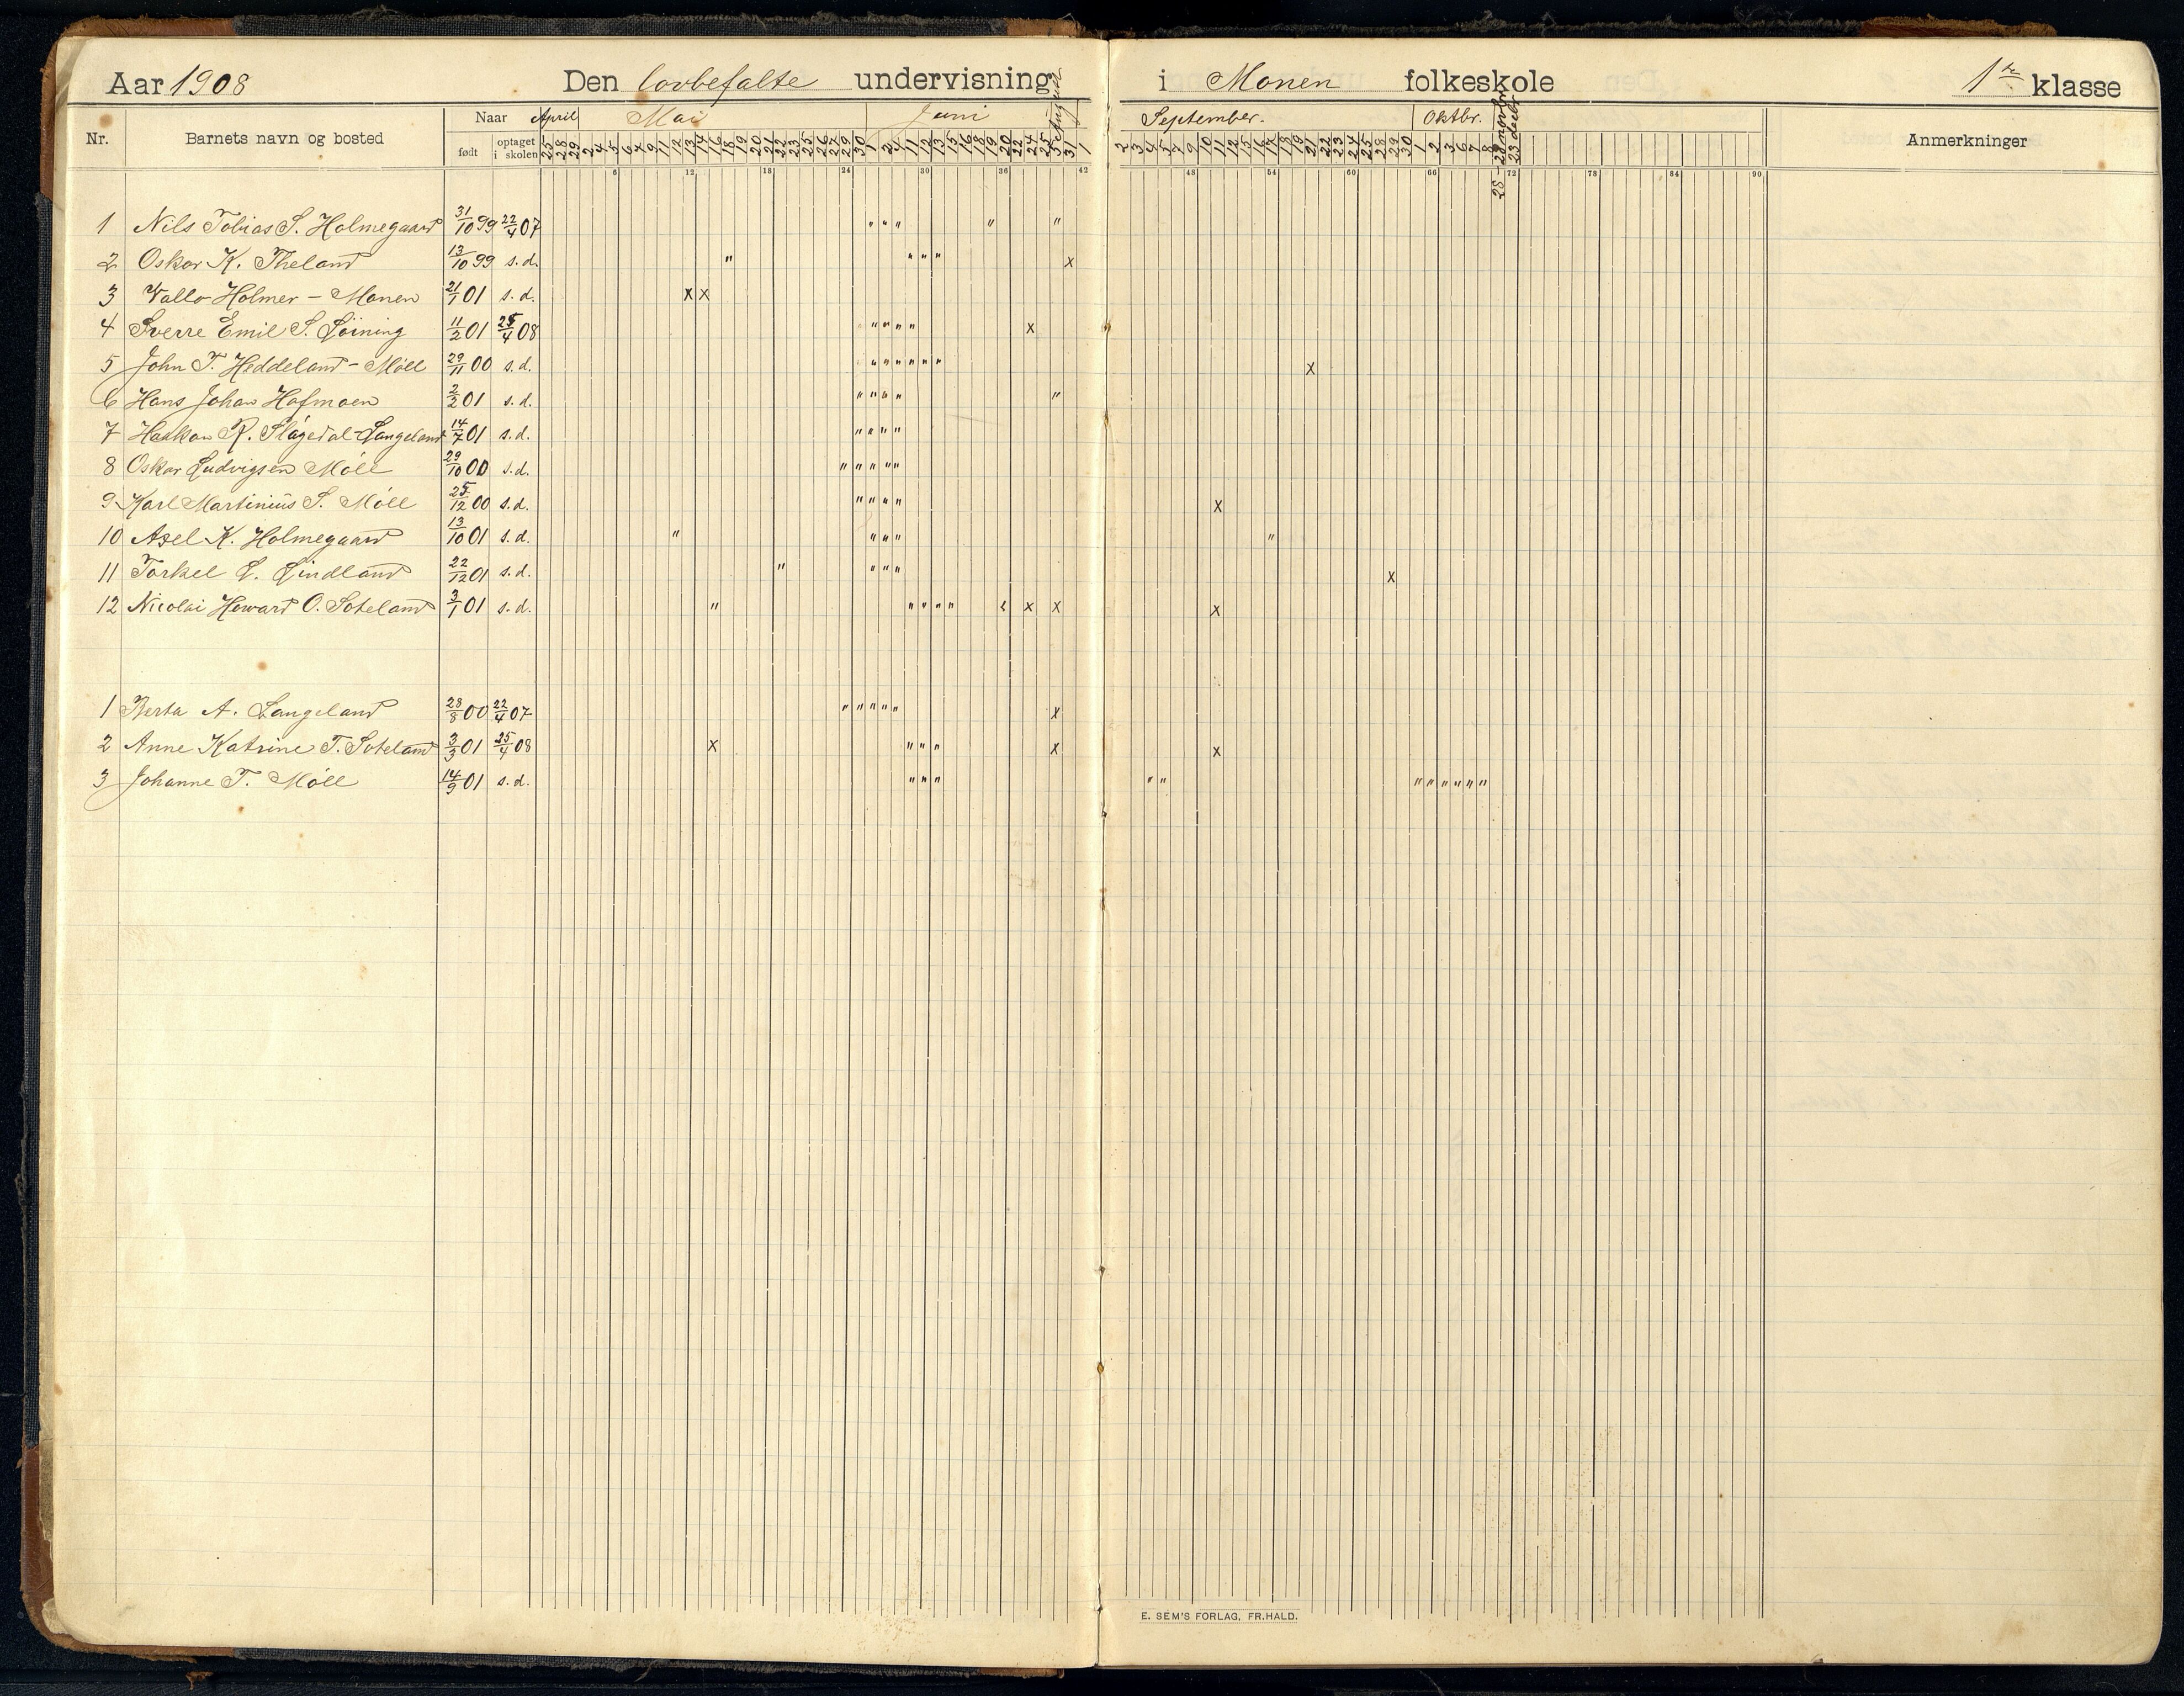 Aar 1908 Den lovbefalte undervisning i Monen folkeskole 1ste klasse
Nr. Barnets navn og bosted Naar født optaget i skolen April Mai Juni August September. Oktbr. novbr decbr Anmerkninger
25 28 29 2 4 5 6 7 9 11 12 13 14 16 18 19 20 21 22 23 25 26 27 29 30 1 2 4 11 12 13 15 16 18 19 20 22 24 25 31 1 2 3 4 5 7 9 10 11 12 15 16 17 18 19 21 22 23 24 25 28 29 30 1 2 3 6 7 8 28 23
6 12 18 24 30 36 42 48 54 60 66 72 78 84 90
1 Nils Tobias S. Holmegaard 31/10 99 22/4 07 " " " " "
2 Oskar K. Theland 13/10 99 s.d. " " " " x
3 Vallo Holmer - Monen 21/1 01 s.d. x x
4 Sverre Emil S. Løining 11/2 01 25/4 08 " " " " x
5 John T. Heddeland - Møll 29/11 00 s.d. " " " " " " x
6 Hans Johan Hafmoen 2/2 01 s.d. " " " " "
7 Haakon R. Slågedal-Langeland 14/7 01 s.d. " " " "
8 Oskar Ludvigsen Møll 29/10 00 s.d. " " " " "
9 Karl Martinius S. Møll 25/12 00 s.d. " " " " x
10 Axel K. Holmegaard 13/10 01 s.d. " " " " "
11 Torkel L. Lindland 22/12 01 s.d. " " " " x
12 Nicolai Howard O. Soteland 3/1 01 s.d. " " " " " x x x
1 Berta A. Langeland 28/8 00 22/4 07 " " " " " x
2 Anne Katrine T. Soteland 3/3 01 25/4 08 x " " " x x
3 Johanne T. Møll 14/9 01 s.d. " " " " " " " " " " "
E. SEM'S FORLAG, FR.HALD.